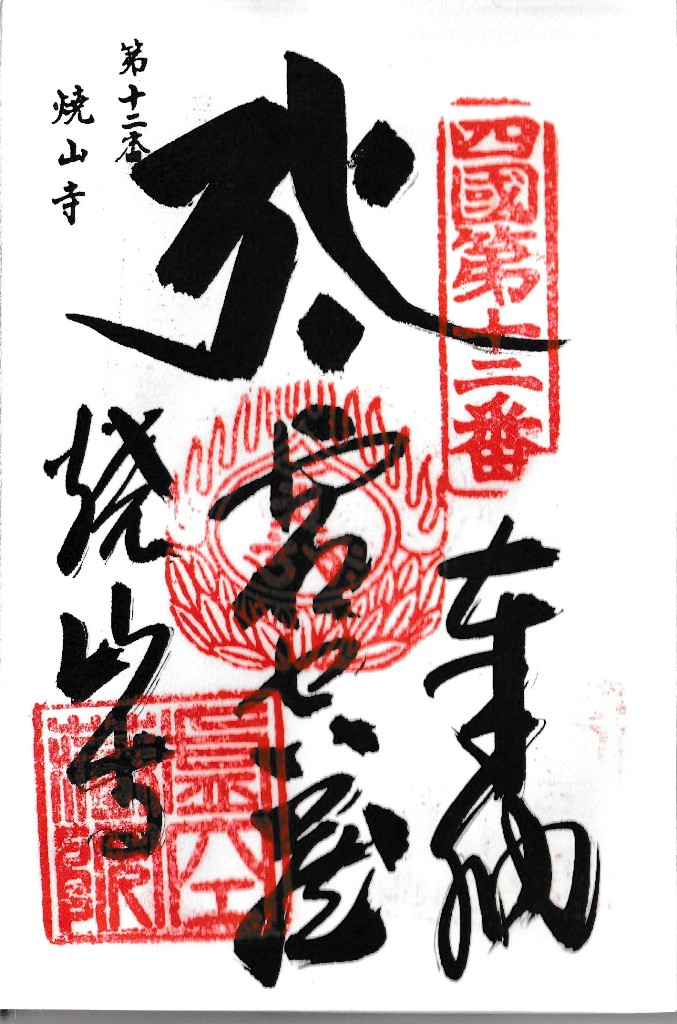 四國第十二番
奉納
虚空蔵
焼山寺
第十二番
焼山寺